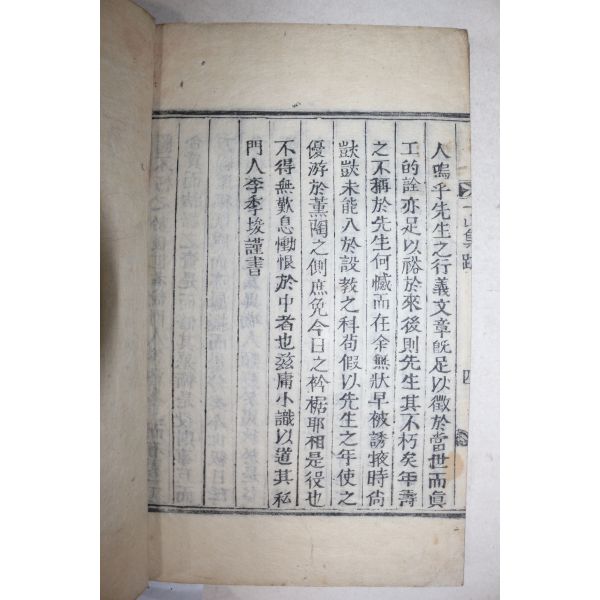 人嗚乎先生之行義文章旣足以徵於當世而眞
工的詮亦足以裕於來後則先生其不朽矣年壽
之不稱於先生何憾而在余無狀早被誘掖時尙
㱯㱯未能入於設敎之科苟假以先生之年使之
優游於薰陶之側庶免今日之衿裾耶相是役也
不得無歎息慟恨於中者也玆庸小識以道其私
門人李季埈謹書
山集跋
四